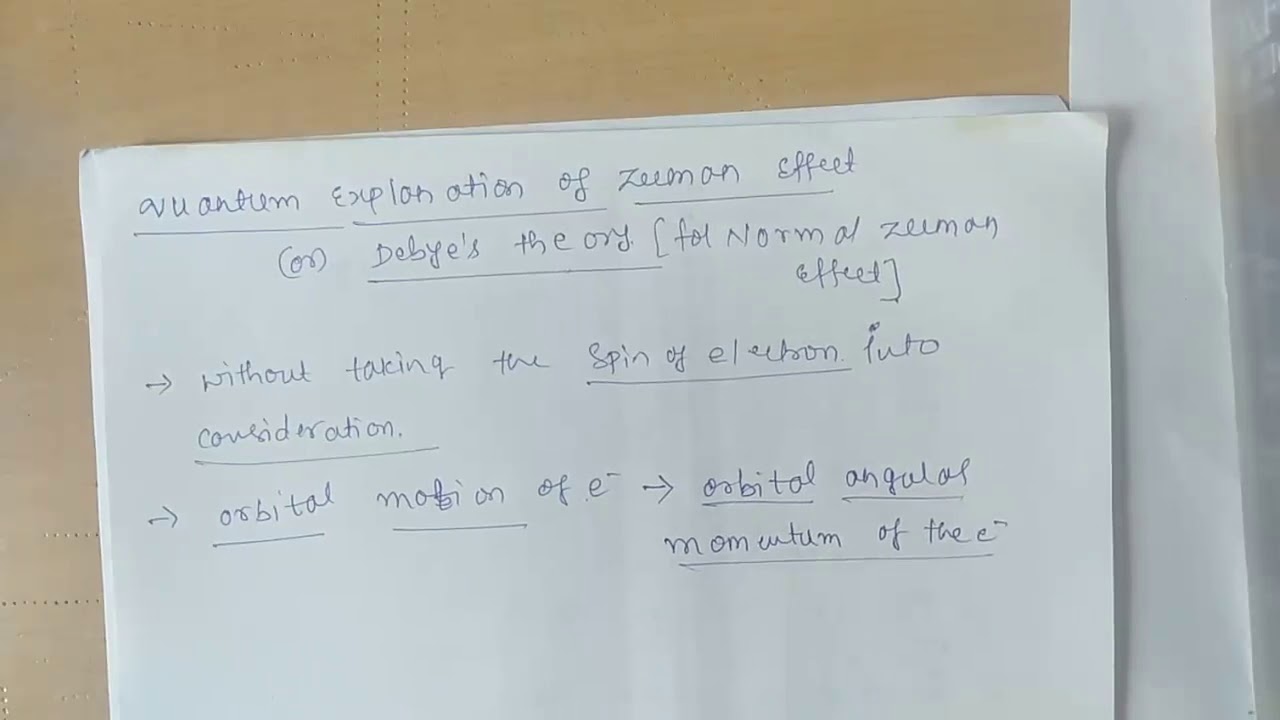 Quantum Explanation of Zeeman Effect
(or) Debye's theory [for Normal Zeeman
Effect]
→ without taking the Spin of electron into
consideration.
→ orbital motion of e⁻ → orbital angular
momentum of the e⁻